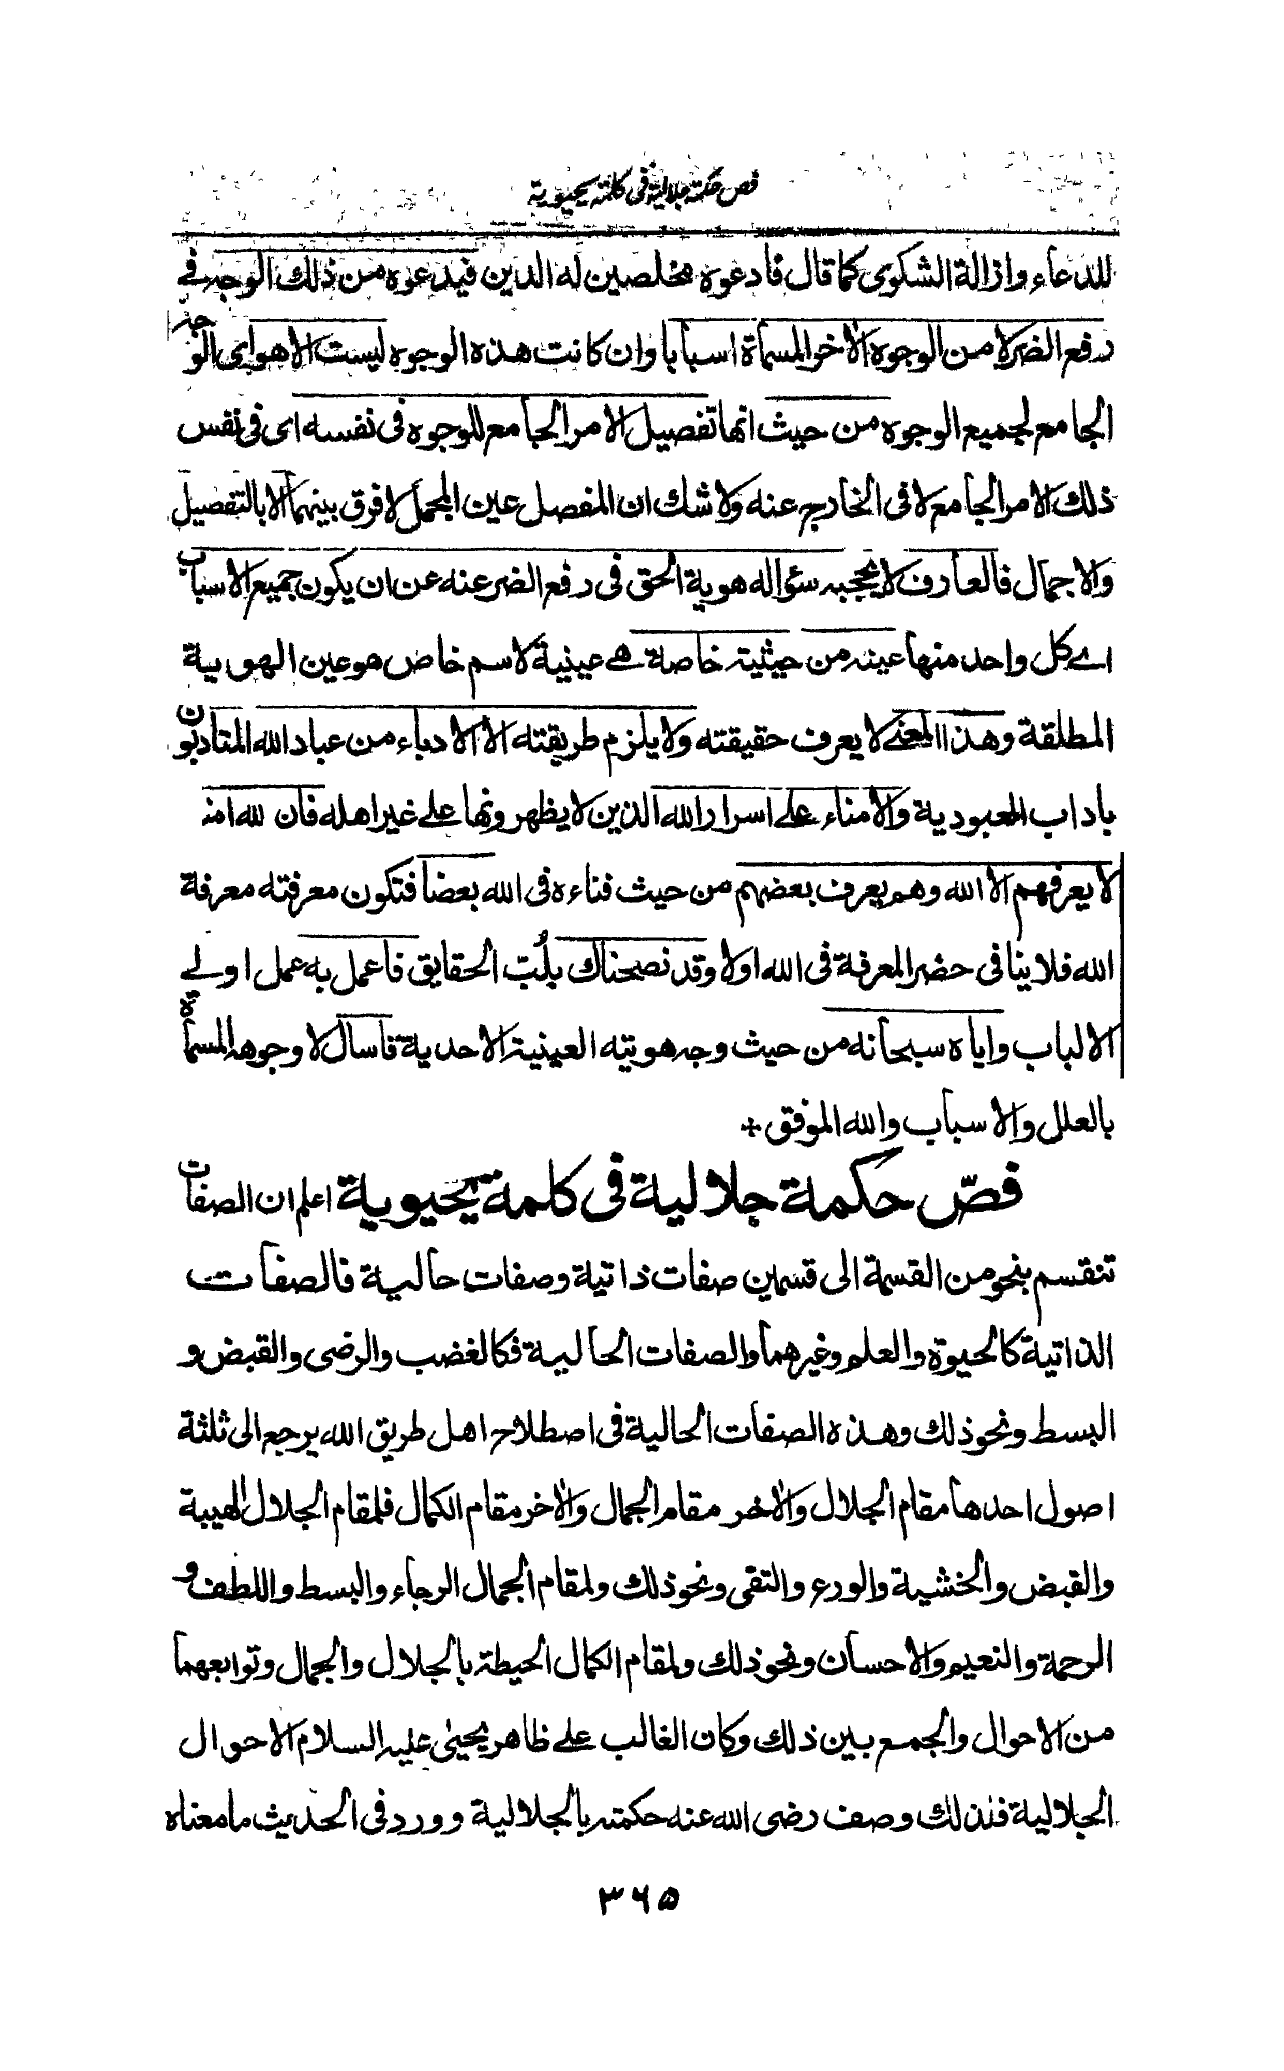 فص حكمة جلالية فى كلمة يحيوية
للدعاء وازالة الشكوى كما قال فادعوه مخلصين له الدين فيدعوه من ذلك الوجه فے
رفع الضر لا من الوجوه الاخر المسماة اسبابا وان كانت هذه الوجوه ليست الا هو اى الوجه
الجامع لجميع الوجوه من حيث انها تفصيل الامر الجامع للوجوه فى نفسه اى فى نفس
ذلك الامر الجامع لا فى الخارج عنه ولا شك ان المفصل عين المجمل لا فرق بينهما الا بالتفصيل
والاجمال فالعارف لا يحجبه سؤاله هوية الحق فى رفع الضر عنه عن ان يكون جميع الاسباب
اے كل واحد منها عينه من حيثية خاصة هے عينية لاسم خاص هو عين الهويية
المطلقة وهذا المعنے لا يعرف حقيقته ولا يلزم طريقته الا الادباء من عباد الله المتادبون
باداب العبودية والامناء علے اسرار الله الذين لا يظهرونها علے غير اهله فان لله امنا
لا يعرفهم الا الله وهم يعرف بعضهم من حيث فناءه فى الله بعضا فتكون معرفته معرفة
الله فلا ينافى حضر المعرفة فى الله اولا وقد نصحناك بلُبّ الحقايق فاعمل به عمل اولے
الالباب واياه سبحانه من حيث وجه هويته العينية الاحدية فاسال لا وجوهه المسماة
بالعلل والاسباب والله الموفق +
فصّ حكمة جلالية فى كلمة يحيوية اعلم ان الصفات
تنقسم بنحو من القسمة الى قسمين صفات ذاتية وصفات حالية فالصفات
الذاتية كالحيوة والعلم وغيرهما والصفات الحالية فكالغضب والرضى والقبض و
البسط ونحو ذلك وهذه الصفات الحالية فى اصطلاح اهل طريق الله يرجع الى ثلثة
اصول احدها مقام الجلال والاخر مقام الجمال والاخر مقام الكمال فلمقام الجلال الهيبة
والقبض والخشية والورع والتقى ونحو ذلك ولمقام الجمال الرجاء والبسط واللطف و
الرحمة والنعيم والاحسان ونحو ذلك ولمقام الكمال الحيطة بالجلال والجمال وتوابعهما
من الاحوال والجمع بين ذلك وكان الغالب علے ظاهر يحيىٰ عليه السلام الاحوال
الجلالية فلذلك وصف رضى الله عنه حكمته بالجلالية وورد فى الحديث ما معناه
۳۶۵